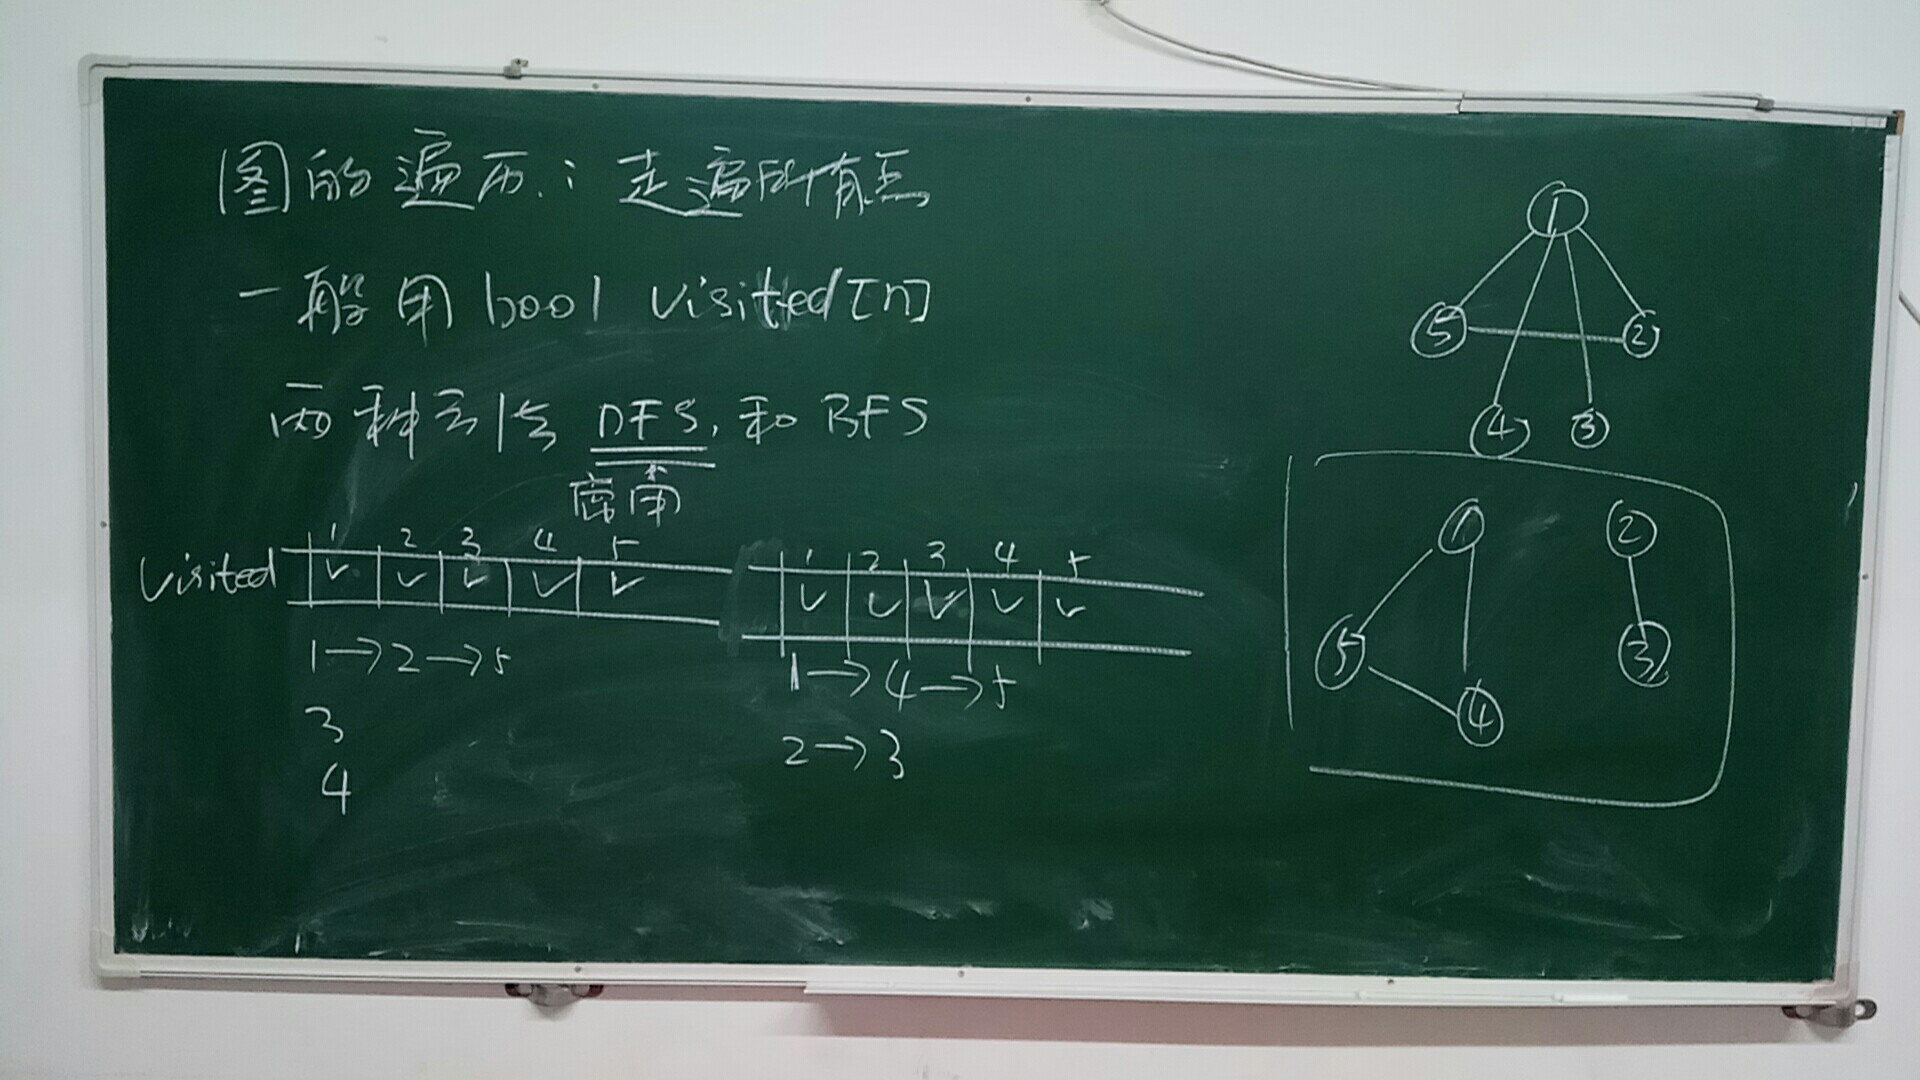 图的遍历:走遍所有点
一般用 bool visited[n]
两种方法 DFS, 和 BFS
常用
1 2 3 4 5
visited ✓ ✓ ✓ ✓ ✓
1→2→5
3
4
1 2 3 4 5
✓ ✓ ✓ ✓ ✓
1→4→5
2→3
1
5 2
4 3
1 2
5 3
4